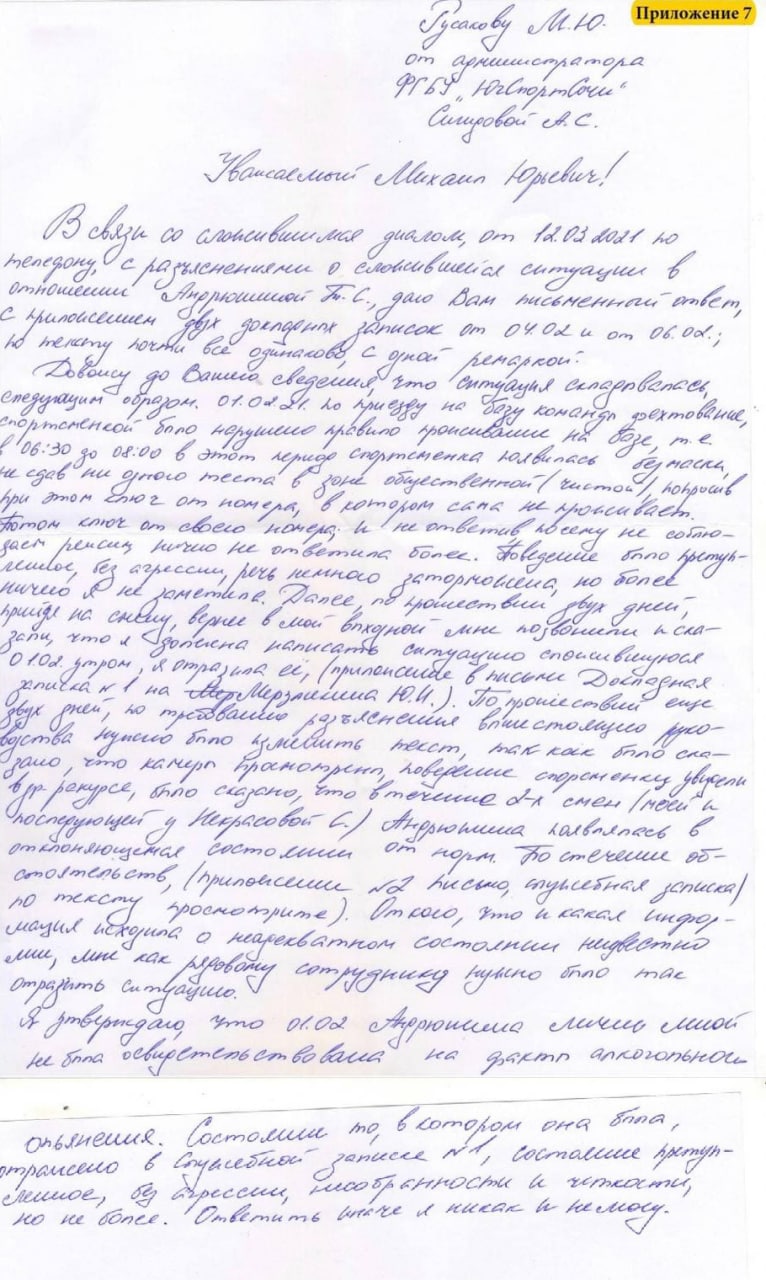 Приложение 7
Русакову М.Ю.
от администратора
ФГБУ "ЮгСпортСочи"
Сигидовой А.С.
Уважаемый Михаил Юрьевич!
В связи со сложившимся диалом, от 12.03.2021 по
телефону, с разъяснениями о сложившейся ситуации в
отношении Андрюшиной Т.С., даю Вам письменный ответ,
с приложением двух докладных записок от 04.02 и от 06.02.;
по тексту почти все одинаково, с одной ремаркой.
Довожу до Вашего сведения, что ситуация складывалась,
следующим образом. 01.02.21. по приезду на базу команды фехтование,
спортсменкой было нарушено правило проживание на базе, т.е.
в 06:30 до 08:00 в этот период спортсменка появилась без маски,
не сдав ни одного теста в зоне общественной (чистой), попросив
при этом ключ от номера, в котором сама не проживает.
Потом ключ от своего номера, и не ответив, почему не соблю-
дает режим, ничего не ответила более. Поведение было
без агрессии, речь немного заторможена, но более
ничего я не заметила. Далее, по прошествии двух дней,
придя на смену, вернее в мой выходной мне позвонили и ска-
зали, что я должна написать ситуацию сложившуюся
01.02. утром, я отразила её, (приложение в письми Докладная
записка №1 на Мерзликина Ю.И.). По прошествий еще
двух дней, по требованию разъяснения вышестоящего руко-
водства нужно было изменить текст, так как было ска-
зано, что камеры просмотрены, поведение спорсменки увидели
в др. ракурсе, было сказано, что в течение 2-х смен (моей и
последующей у Некрасовой С.) Андрюшина появлялась в
отклоняющемся состоянии от норм. По стечение об-
стоятельств, (приложении №2 письмо, служебная записка)
по тексту просмотрите). От кого, что и какая инфор-
мация исходила о неадекватном состоянии неизвестно
мне, мне как рядовому сотруднику нужно было так
отразить ситуацию.
Я утверждаю, что 01.02 Андрюшина лично мной
не была освидетельствована на факты алкогольного
опьянения. Состояние то, в котором она была,
отражено в служебной записке №1, состояние
без агрессии, несобранности и четкости,
но не более. Ответить иначе я никак и не могу.